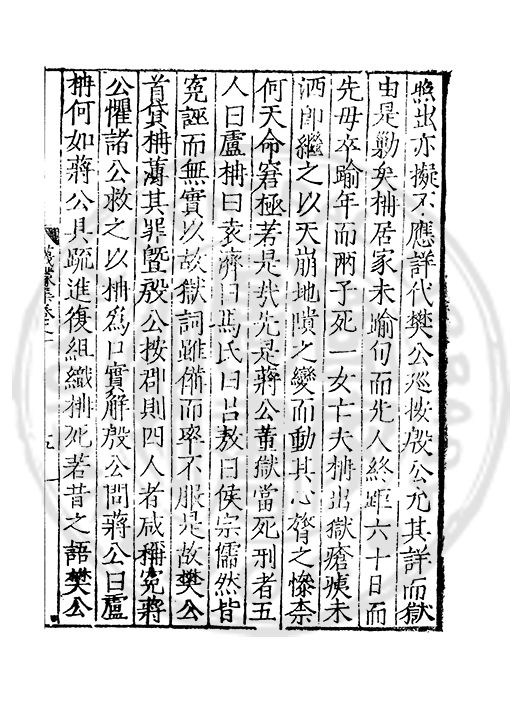 照出亦擬不應詳代樊公巡按殷公允其詳而獄
由是勦矣柟居家未踰旬而先人終距六十日而
先母卒踰年而兩子死一女亡夫柟出獄瘡痍未
洒即繼之以天崩地噴之變而動其心膂之慘柰
何天命窘極若是哉先是蔣公董獄當死刑者五
人曰盧柟曰袁濟曰馬氏曰呂敖曰侯宗儒然皆
寃誣而無實以故獄詞雖備而率不服是故樊公
首貸柟薄其罪暨殷公按郡則四人者咸稱寃蔣
公懼諸公救之以柟爲口實解殷公問蔣公曰盧
柟何如蔣公具疏進復組織柟死若昔之語樊公
蠛蠓集卷之
五